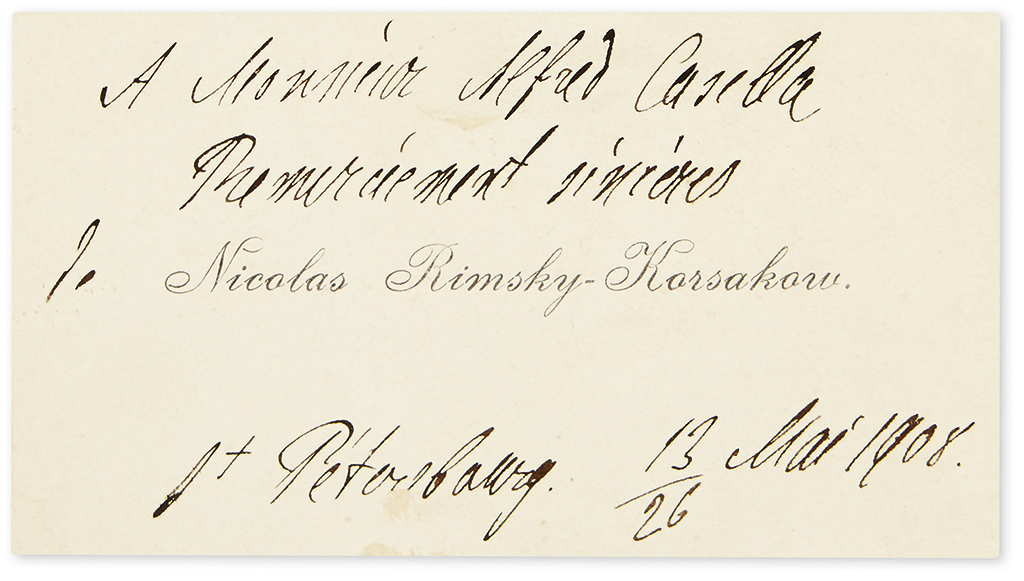 A Monsieur Alfred Casella
Remerciement sincères
Nicolas Rimsky-Korsakow.
St Pétersbourg. 13/26 Mai 1908.